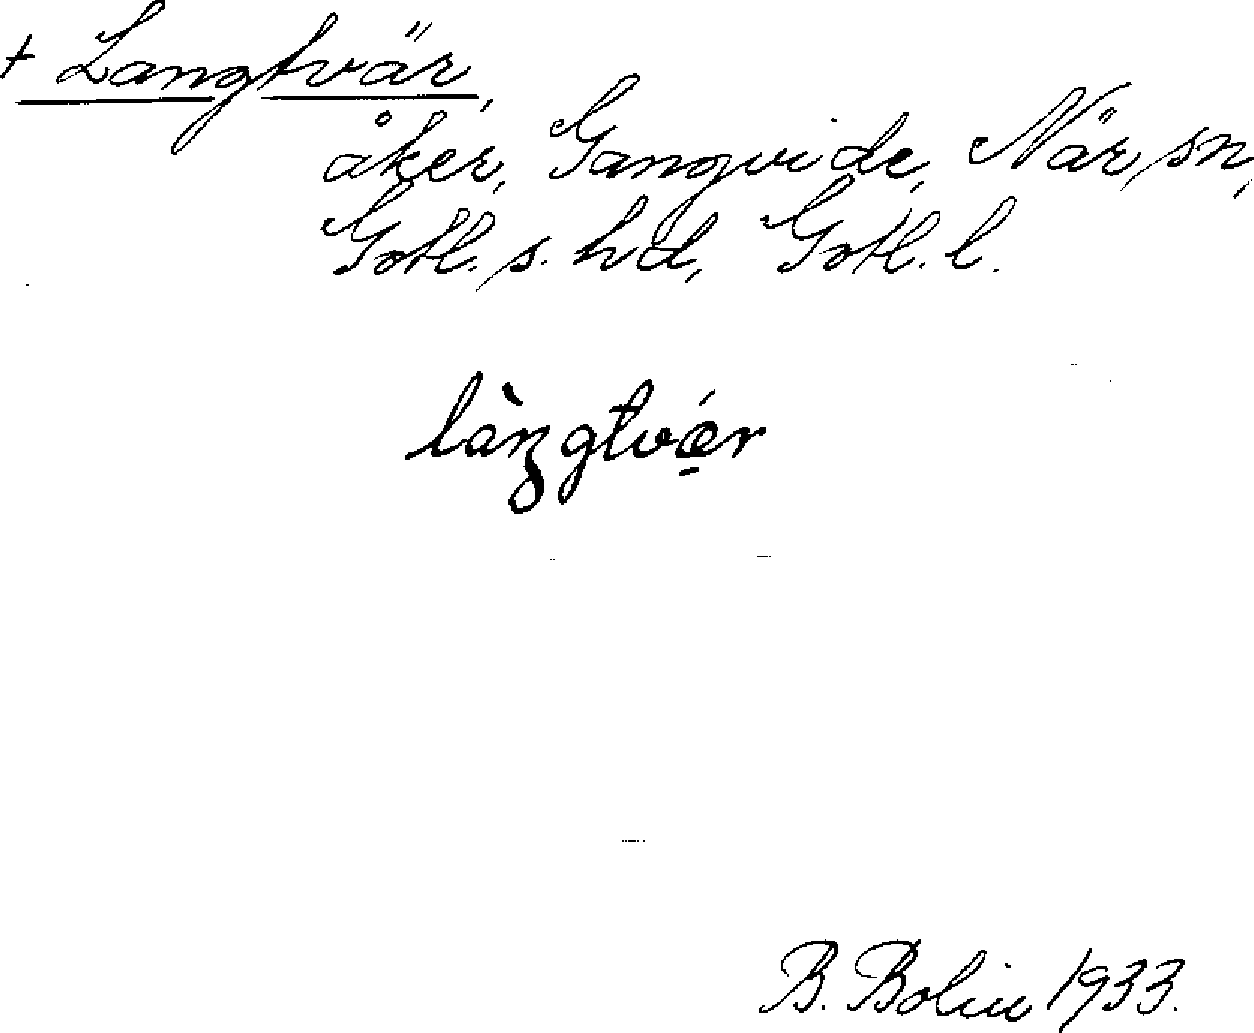 + Langtvär,
åker, Gangvide, När sn,
Gotl. s. hd, Gotl. l.
làŋgtvǽ̱r
B. Bolin 1933.